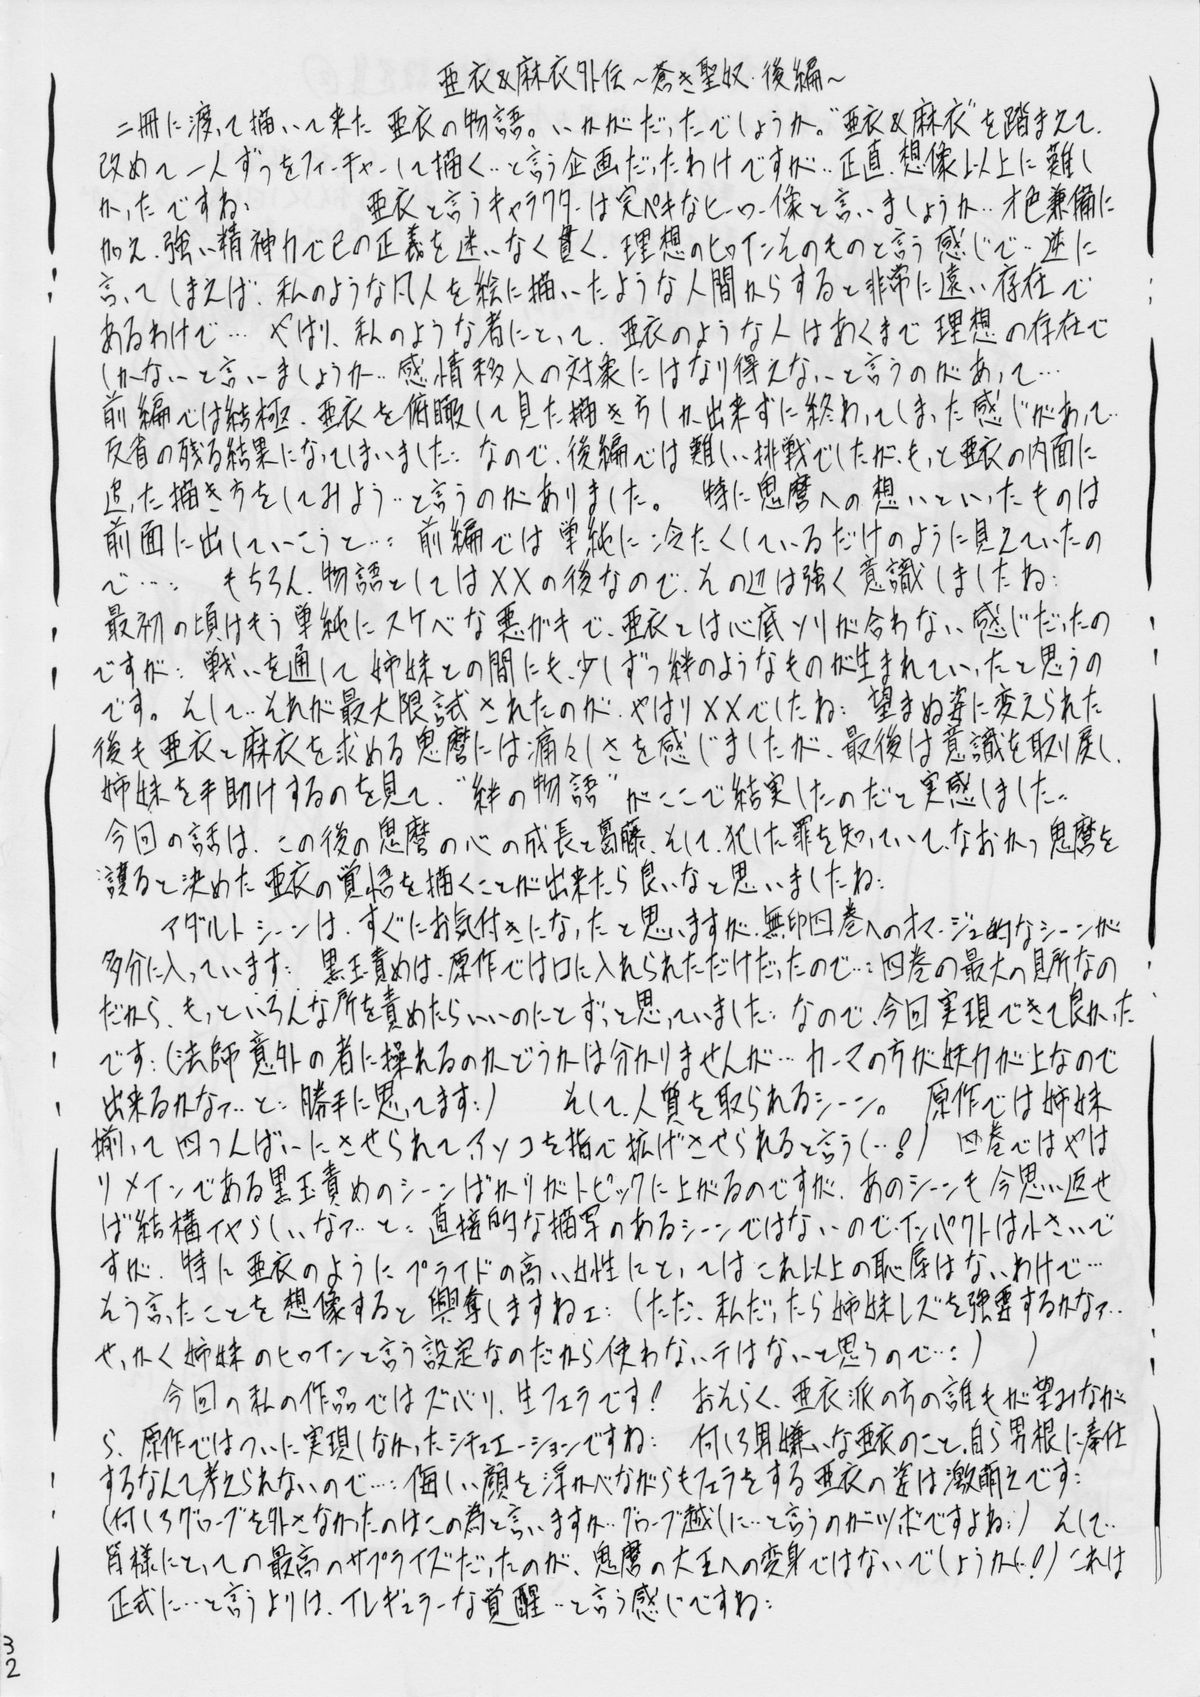 亜衣&麻衣外伝~蒼き聖奴・後編~
二冊に渡って描いて来た亜衣の物語。いかがだったでしょうか。"亜衣&麻衣"を踏まえて、
改めて一人ずつをフィーチャーして描く…と言う企画だったわけですが…正直、想像以上に難し
かったですね… 亜衣と言うキャラクターは完ペキなヒーロー像と言いましょうか…才色兼備に
加え、強い精神力で己の正義を迷いなく貫く、理想のヒロインそのものと言う感じで…逆に
言ってしまえば、私のような凡人を絵に描いたような人間からすると非常に遠い存在で
あるわけで… やはり、私のような者にとって、亜衣のような人はあくまで理想の存在で
しかないと言いましょうか…感情移入の対象にはなり得ないと言うのがあって…
前編では結極、亜衣を俯瞰して見た描き方しか出来ずに終わってしまった感じがあって…
反省の残る結果になってしまいました… なので、後編では難しい挑戦でしたが、もっと亜衣の内面に
迫った描き方をしてみよう…と言うのがありました。 特に鬼麿への想いといったものは
前面に出していこうと… 前編では単純に冷たくしているだけのように見えていたの
で… もちろん、物語としてはXXの後なので、その辺は強く意識しましたね…
最初の頃はもう単純にスケベな悪がキで、亜衣とは心底ソリが合わない感じだったの
ですが… 戦いを通して姉妹との間にも、少しずつ絆のようなものが生まれていったと思うの
です。そして…それが最大限試されたのが、やはりXXでしたね… 望まぬ姿に変えられた
後も亜衣と麻衣を求める鬼麿には痛々しさを感じましたが、最後は意識を取り戻し、
姉妹を手助けするのを見て、"絆の物語"がここで結実したのだと実感しました…
今回の話は、この後の鬼麿の心の成長と葛藤、そして、犯した罪を知っていて、なおかつ鬼麿を
護ると決めた亜衣の覚悟を描くことが出来たら良いなと思いましたね…
アダルトシーンは、すぐにお気付きになったと思いますが、無印四巻へのオマージュ的なシーンが
多分に入っています… 黒玉責めは、原作では口に入れられただけだったので…四巻の最大の見所なの
だから、もっといろんな所を責めたらいいのにとずっと思っていました… なので、今回実現できて良かった
です…(法師意外の者に操れるのかどうかは分かりませんが…カーマの方が妖力が上なので
出来るかなァ…と…勝手に思ってます…) そして、人質を取られるシーン。 原作では姉妹
揃って四つんばいにさせられて、アソコを指で拡げさせられると言う(…!) 四巻ではやは
りメインである黒玉責めのシーンばかりがトピックに上がるのですが、あのシーンも今思い返せ
ば結構イヤらしいなァ…と… 直接的な描写のあるシーンではないので、インパクトは小さいで
すが、特に亜衣のようにプライドの高い女性にとってはこれ以上の恥辱はないわけで…
そう言ったことを想像すると興奮しますねェ… (ただ、私だったら姉妹レズを強要するかなァ…
せっかく姉妹のヒロインと言う設定なのだから使わないテはないと思うので…) )
今回の私の作品ではズバリ、生フェラです! おそらく、亜衣派の方の誰もが望みなが
ら、原作ではついに実現しなかったシチュエーションですね… 何しろ男嫌いな亜衣のこと、自ら男根に奉仕
するなんて考えられないので…侮しい顔を浮かべながらもフェラをする亜衣の姿は激萌えです…
(何しろグローブを外さなかったのはこの為と言いますか…グローブ越しに…と言うのがツボですよね…) そして…
皆様にとっての最高のサプライズだったのが、鬼麿の大王への変身ではないでしょうか(…!) これは
正式に…と言うよりは、イレギュラーな覚醒…と言う感じですね…
32